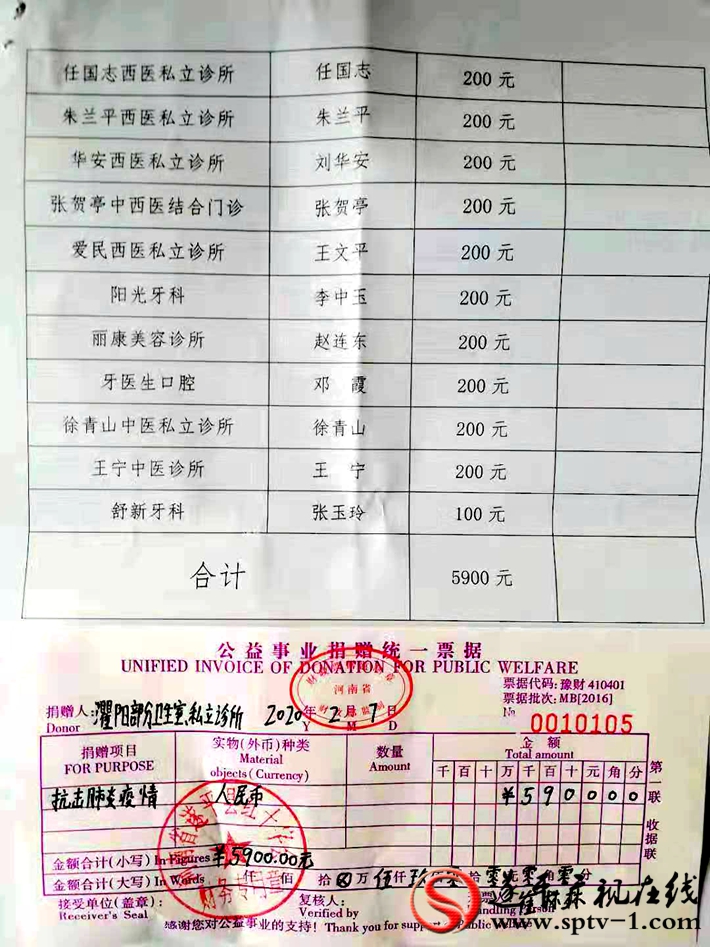 任国志西医私立诊所 任国志 200 元
朱兰平西医私立诊所 朱兰平 200 元
华安西医私立诊所 刘华安 200 元
张贺亭中西医结合门诊 张贺亭 200 元
爱民西医私立诊所 王文平 200 元
阳光牙科 李中玉 200 元
丽康美容诊所 赵连东 200 元
牙医生口腔 邓 霞 200 元
徐青山中医私立诊所 徐青山 200 元
王宁中医诊所 王 宁 200 元
舒新牙科 张玉玲 100 元
合计 5900 元
公益事业捐赠统一票据
UNIFIED INVOICE OF DONATION FOR PUBLIC WELFARE
河南省
票据代码: 豫财 410401
票据批次: MB[2016]
捐赠人: 灈阳部分卫生室,私立诊所 2020 年 2 月 7 日
Donor Y M D
№ 0010105
捐赠项目 实物(外币)种类 数量 金额
FOR PURPOSE Material objects (Currency) Amount Total amount
千 百 十 万 千 百 十 元 角 分
抗击肺炎疫情 人民币 ¥ 5 9 0 0 0 0
第一联
收据联
金额合计(小写) In Figures ¥5900.00元
金额合计(大写) In Words 佰 拾 万 伍 仟 玖 拾 零 元 零 角 零 分
财务专用章
接受单位(盖章): 复核人:
Receiver's Seal Verified by Handling Person
感谢您对公益事业的支持! Thank you for support of Public Welfare
视在线
www.sptv-1.com